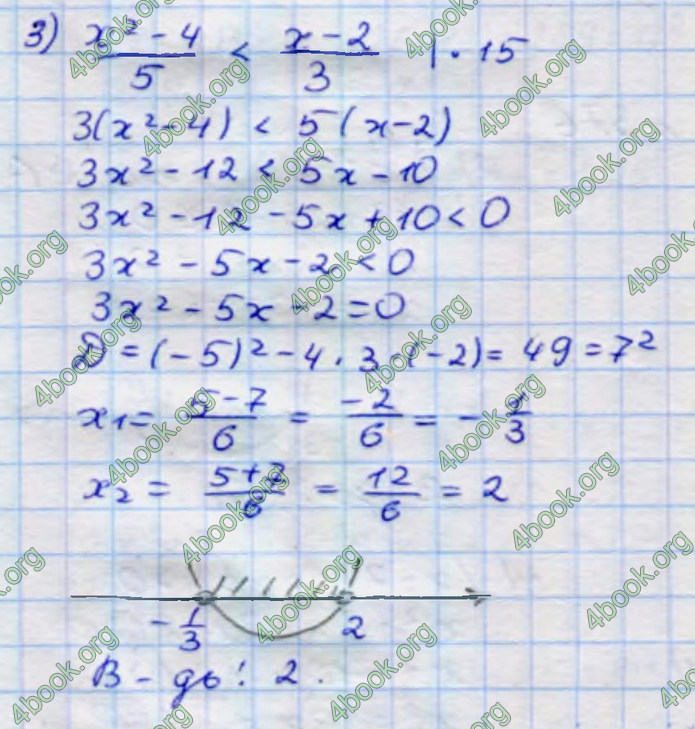 3) (x² - 4)/5 < (x - 2)/3 | · 15
3(x² - 4) < 5(x - 2)
3x² - 12 < 5x - 10
3x² - 12 - 5x + 10 < 0
3x² - 5x - 2 < 0
3x² - 5x - 2 = 0
D = (-5)² - 4 · 3 · (-2) = 49 = 7²
x₁ = (5 - 7)/6 = -2/6 = -1/3
x₂ = (5 + 7)/6 = 12/6 = 2
-1/3 2
В-дь: 2.
4book.org